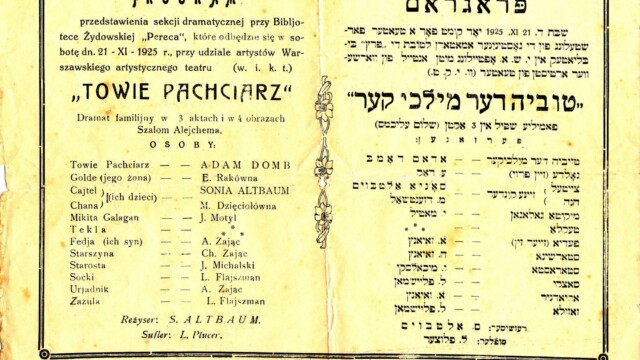 PROGRAM
przedstawienia sekcji dramatycznej przy Bibljo-
tece Żydowskiej „Pereca", które odbędzie się w so-
botę dn. 21 - XI - 1925 r., przy udziale artystów War-
szawskiego artystycznego teatru (w. i. k. t.)
„TOWIE PACHCIARZ"
Dramat familijny w 3 aktach i w 4 obrazach
Szalom Alejchema.
OSOBY:
Towie Pachciarz — — ADAM DOMB
Golde (jego żona) — — E. Rakówna
Cajtel } (ich dzieci) — — SONIA ALTBAUM
Chana } — — M. Dzięciołówna
Mikita Galagan — — J. Motyl
Tekla — — * * *
Fedja (ich syn) — — A. Zając
Starszyna — — Ch. Zając
Starosta — — J. Michalski
Socki — — L. Flajszman
Urjadnik — — A. Zając
Zazula — — L. Flajszman
Reżyser: S. ALTBAUM.
Sufler: L. Plucer.
פראגראם
שבת ד. 21 XI 1925 יאָר קומט פאָר א טעאטער פאר-
שטעלונג פון די
ביבליאטעק
ווער ארטיסטן פון טעאטער (וו. י. ק. ט.)
„טוביה דער מילכיקער"
פאמיליע שפיל אין 3 אקטן (שלום עליכמס)
פערזאנען:
טוביה דער מילכיקער — — אדאם דאמב
גאלדע (זיין פרוי) — — ע. ראק
צייטעל } זיינע קינדער — — סאניא אלטבוים
חנה } — —
מיקיטא גאלאגאן — — י. מאטיל
טעקלא — — * * *
פעדיא (זייער זון) — — א. זאיאנץ
סטארשינא — — ח. זאיאנץ
סטאראסטא — — י. מיכאלסקי
סאצקי — — ל. פליישמאן
אוריאדניק — — א. זאיאנץ
זאזולא — — ל. פליישמאן
רעזשיסער: ס. אלטבוים
סופלער: ל. פלוצער.